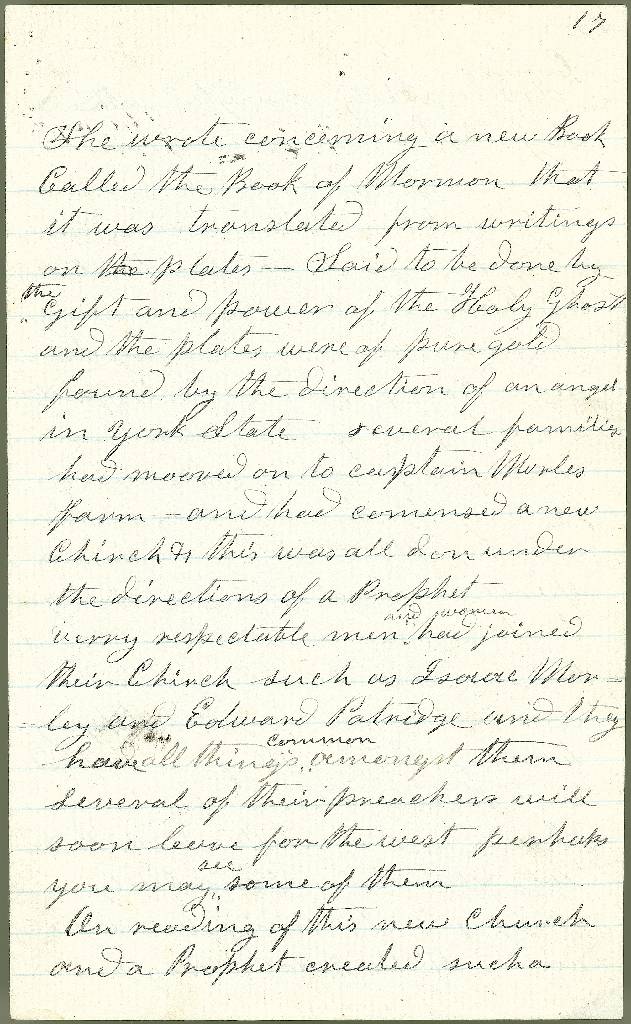 17
She wrote concerning a new Book
Called the Book of Mormon that
it was translated from writings
on the plates — Said to be done by
the
Gift and power of the Holy Ghost
and the plates were of pure gold
found by the direction of an angel
in York State several families
had mooved on to captain Morles
Farm — and had comensed a new
Chirch & this was all don under
the directions of a Prophet
and women
verry respectable men had joined
their Chirch such as Isaac Mor-
ley and Edward Patridge and they
common
have all things amongst them
Several of their preachers will
soon leave for the west perhaps
see
you may some of them
On reading of this new Church
and a Prophet created such a